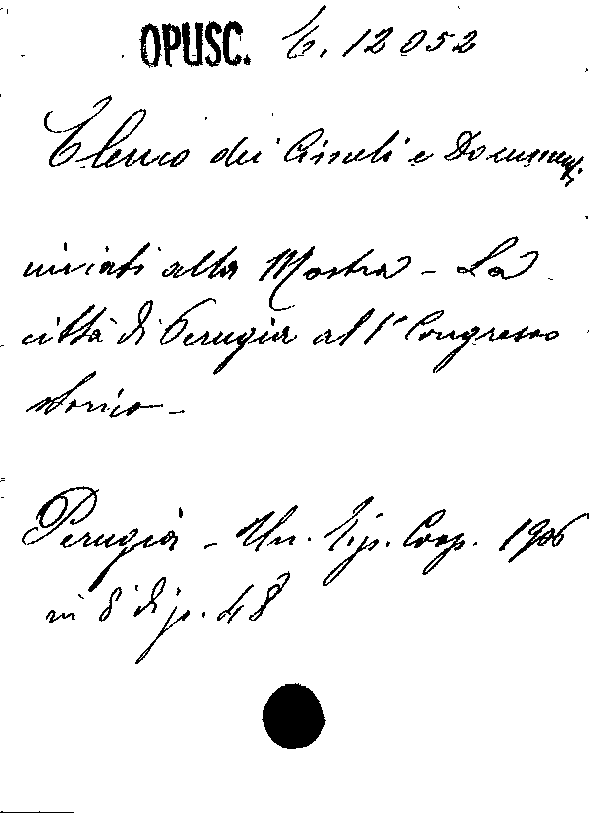 OPUSC. E. 12052
Elenco dei Cimeli e Documenti
inviati alla Mostra - La
città di Perugia al 1° Congresso
storico -
Perugia - Un. Tip. Coop. 1906
in 8 di p. 48